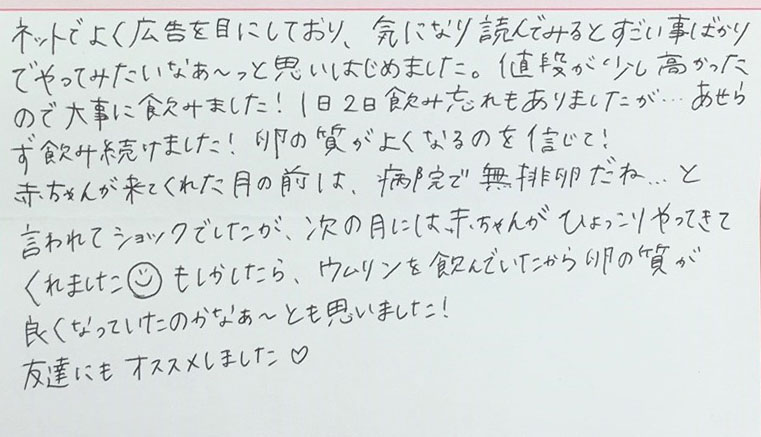 ネットでよく広告を目にしており、気になり読んでみるとすごい事ばかり
でやってみたいなぁ〜っと思いはじめました。値段が少し高かった
ので大事に飲みました！1日2日飲み忘れもありましたが…あせら
ず飲み続けました！卵の質がよくなるのを信じて！
赤ちゃんが来てくれた月の前は、病院で無排卵だね…と
言われてショックでしたが、次の月には赤ちゃんがひょっこりやってきて
くれました☺もしかしたら、ウムリンを飲んでいたから卵の質が
良くなっていたのかなぁ〜とも思いました！
友達にもオススメしました♡